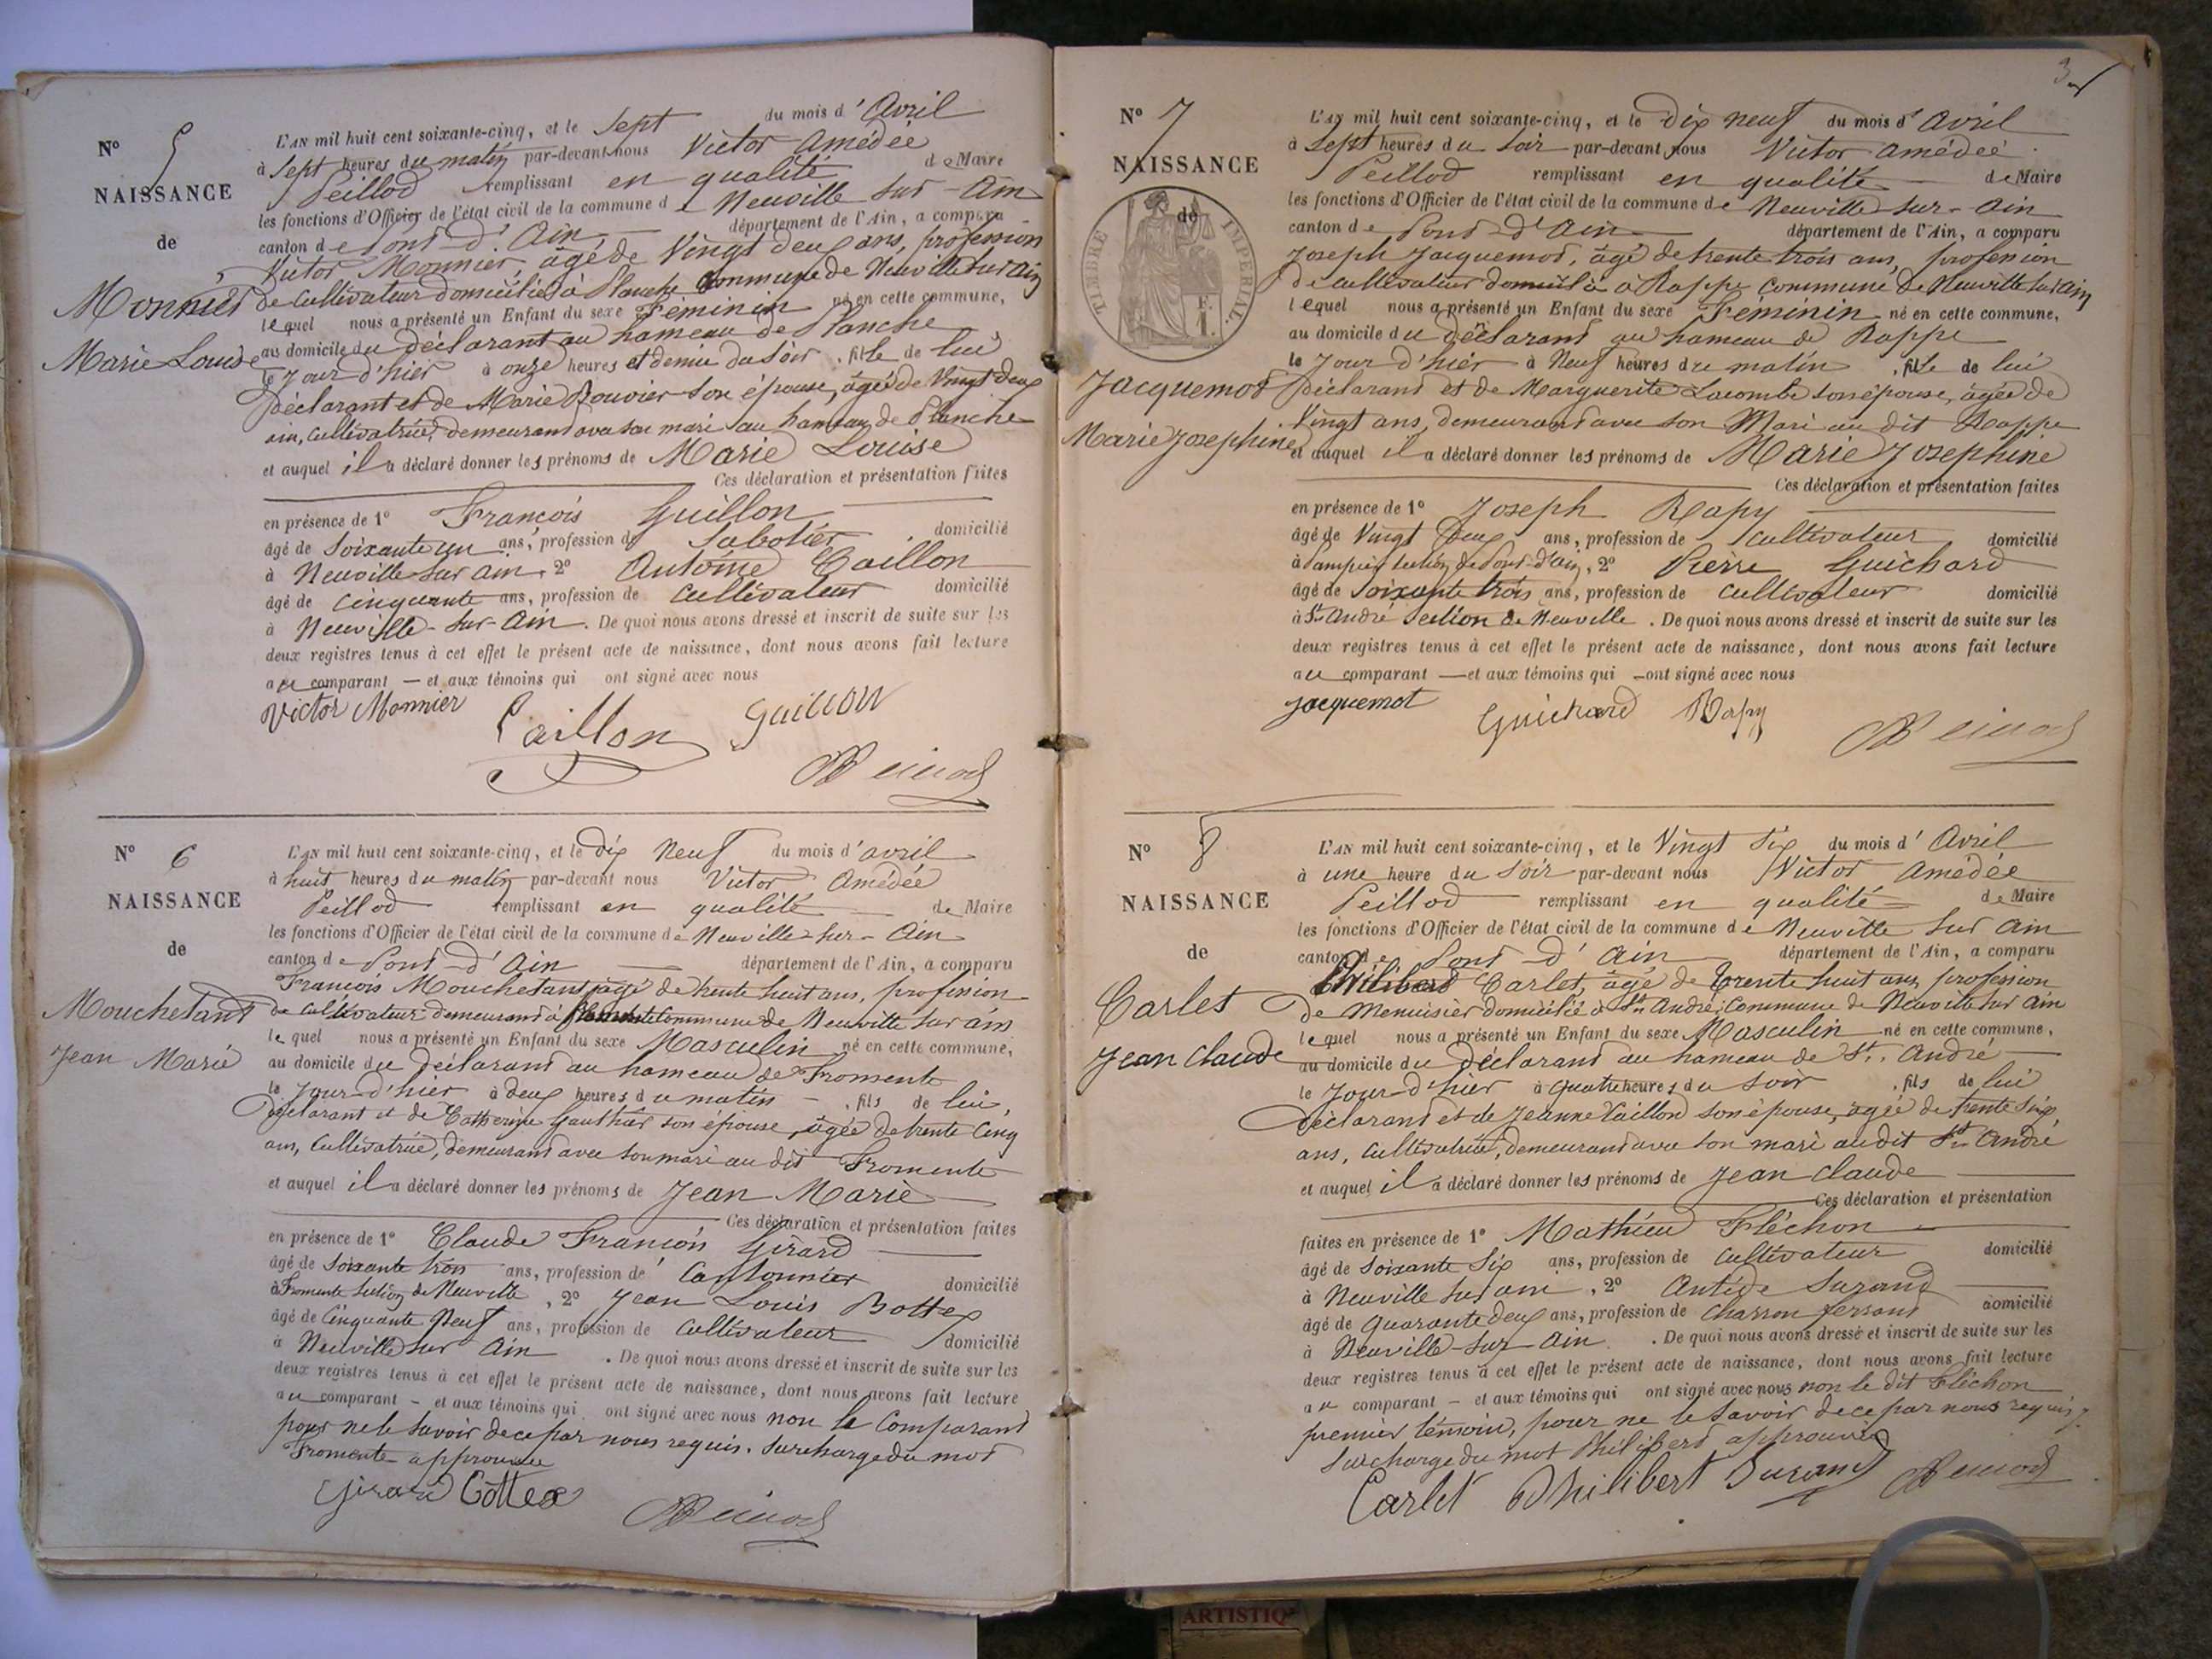 N° 5
NAISSANCE
de
Monnier
Marie Louise
L'AN mil huit cent soixante-cinq, et le Sept du mois d'Avril
à Sept heures du matin par-devant nous Victor Amédée
Peillod remplissant en qualité de Maire
les fonctions d'Officier de l'état civil de la commune de Neuville sur-Ain
canton de Pont-d'Ain département de l'Ain, a comparu
Victor Monnier, âgé de Vingt deux ans, profession
de Cultivateur domicilié à Planche Commune de Neuville sur ain
lequel nous a présenté un Enfant du sexe Féminin né en cette commune,
au domicile du déclarant au hameau de Planche
le jour d'hier à onze heures et demie du soir, fille de lui
Déclarant et de Marie Bouvier son épouse, âgée de Vingt deux
ans, Cultivatrice, demeurant avec son mari au hameau de Planche
et auquel il a déclaré donner les prénoms de Marie Louise
Ces déclaration et présentation faites
en présence de 1° François Guillon
âgé de Soixante un ans, profession de Sabotier domicilié
à Neuville sur ain, 2° Antoine Caillon
âgé de Cinquante ans, profession de Cultivateur domicilié
à Neuville-sur-Ain. De quoi nous avons dressé et inscrit de suite sur les
deux registres tenus à cet effet le présent acte de naissance, dont nous avons fait lecture
au comparant — et aux témoins qui ont signé avec nous
Victor Monnier
Caillon Guillon
N° 6
NAISSANCE
de
Mouchetant
Jean Marie
L'AN mil huit cent soixante-cinq, et le Dix Neuf du mois d'avril
à huit heures du matin par-devant nous Victor Amédée
Peillod remplissant en qualité de Maire
les fonctions d'Officier de l'état civil de la commune de Neuville-sur-Ain
canton de Pont-d'Ain département de l'Ain, a comparu
François Mouchetant, âgé de trente huit ans, profession
de Cultivateur demeurant à Fromente Commune de Neuville sur ain
lequel nous a présenté un Enfant du sexe Masculin né en cette commune,
au domicile du déclarant au hameau de Fromente
le jour-d'hier à deux heures du matin — , fils de lui,
Déclarant et de Catherine Gauthier son épouse, âgée de trente Cinq
ans, Cultivatrice, demeurant avec son mari au dit Fromente
et auquel il a déclaré donner les prénoms de Jean Marie
Ces déclaration et présentation faites
en présence de 1° Claude François Girard
âgé de Soixante trois ans, profession de Cantonnier domicilié
à Fromente section de Neuville, 2° Jean Louis Bottex
âgé de Cinquante Neuf ans, profession de Cultivateur domicilié
à Neuville sur Ain . De quoi nous avons dressé et inscrit de suite sur les
deux registres tenus à cet effet le présent acte de naissance, dont nous avons fait lecture
au comparant — et aux témoins qui ont signé avec nous non le Comparant
pour ne le savoir de ce par nous requis. Surcharge du mot
Fromente approuvée
Girard Bottex
3
N° 7
NAISSANCE
de
TIMBRE IMPERIAL
1 F.
Jacquemot
Marie Josephine
L'AN mil huit cent soixante-cinq, et le Dix neuf du mois d'avril
à Sept heures du Soir par-devant nous Victor Amédée
Peillod remplissant en qualité de Maire
les fonctions d'Officier de l'état civil de la commune de Neuville-sur-Ain
canton de Pont-d'Ain département de l'Ain, a comparu
Joseph Jacquemot, âgé de trente trois ans, profession
de cultivateur domicilié à Rappe Commune de Neuville sur ain
lequel nous a présenté un Enfant du sexe Féminin né en cette commune,
au domicile du déclarant au hameau de Rappe
le jour d'hier à Neuf heures du matin , fille de lui
Déclarant et de Marguerite Lacombe son épouse, âgée de
Vingt ans, demeurant avec son Mari au dit Rappe
et auquel il a déclaré donner les prénoms de Marie Josephine
Ces déclaration et présentation faites
en présence de 1° Joseph Rapy
âgé de Vingt Deux ans, profession de Cultivateur domicilié
à section de Pont-d'Ain, 2° Pierre Guichard
âgé de soixante trois ans, profession de Cultivateur domicilié
à St André section de Neuville . De quoi nous avons dressé et inscrit de suite sur les
deux registres tenus à cet effet le présent acte de naissance, dont nous avons fait lecture
au comparant — et aux témoins qui ont signé avec nous
jacquemot
Guichard Rapy
N° 8
NAISSANCE
de
Carlet
Jean Claude
L'AN mil huit cent soixante-cinq, et le Vingt Six du mois d'Avril
à une heure du Soir par-devant nous Victor Amédée
Peillod remplissant en qualité de Maire
les fonctions d'Officier de l'état civil de la commune de Neuville sur ain
canton de Pont-d'Ain département de l'Ain, a comparu
Philibert Carlet, âgé de trente huit ans, profession
De Menuisier domicilié à St André, Commune de Neuville sur ain
lequel nous a présenté un Enfant du sexe Masculin né en cette commune,
au domicile du Déclarant au hameau de St. André
le jour-d'hier à quatre heures du soir , fils de lui
Déclarant et de Jeanne Vaillon son épouse, âgée de trente Six
ans, Cultivatrice, demeurant avec son mari au dit St André
et auquel il a déclaré donner les prénoms de Jean Claude
Ces déclaration et présentation
faites en présence de 1° Mathieu Fléchon
âgé de Soixante Six ans, profession de Cultivateur domicilié
à Neuville sur ain, 2° Antide Surand
âgé de quarante deux ans, profession de Charron ferrant domicilié
à Neuville-sur-Ain . De quoi nous avons dressé et inscrit de suite sur les
deux registres tenus à cet effet le présent acte de naissance, dont nous avons fait lecture
au comparant — et aux témoins qui ont signé avec nous non le dit Fléchon
premier témoin, pour ne le savoir de ce par nous requis,
Surcharge du mot Philibert approuvée
Carlet Philibert Surand
ARTISTIQ